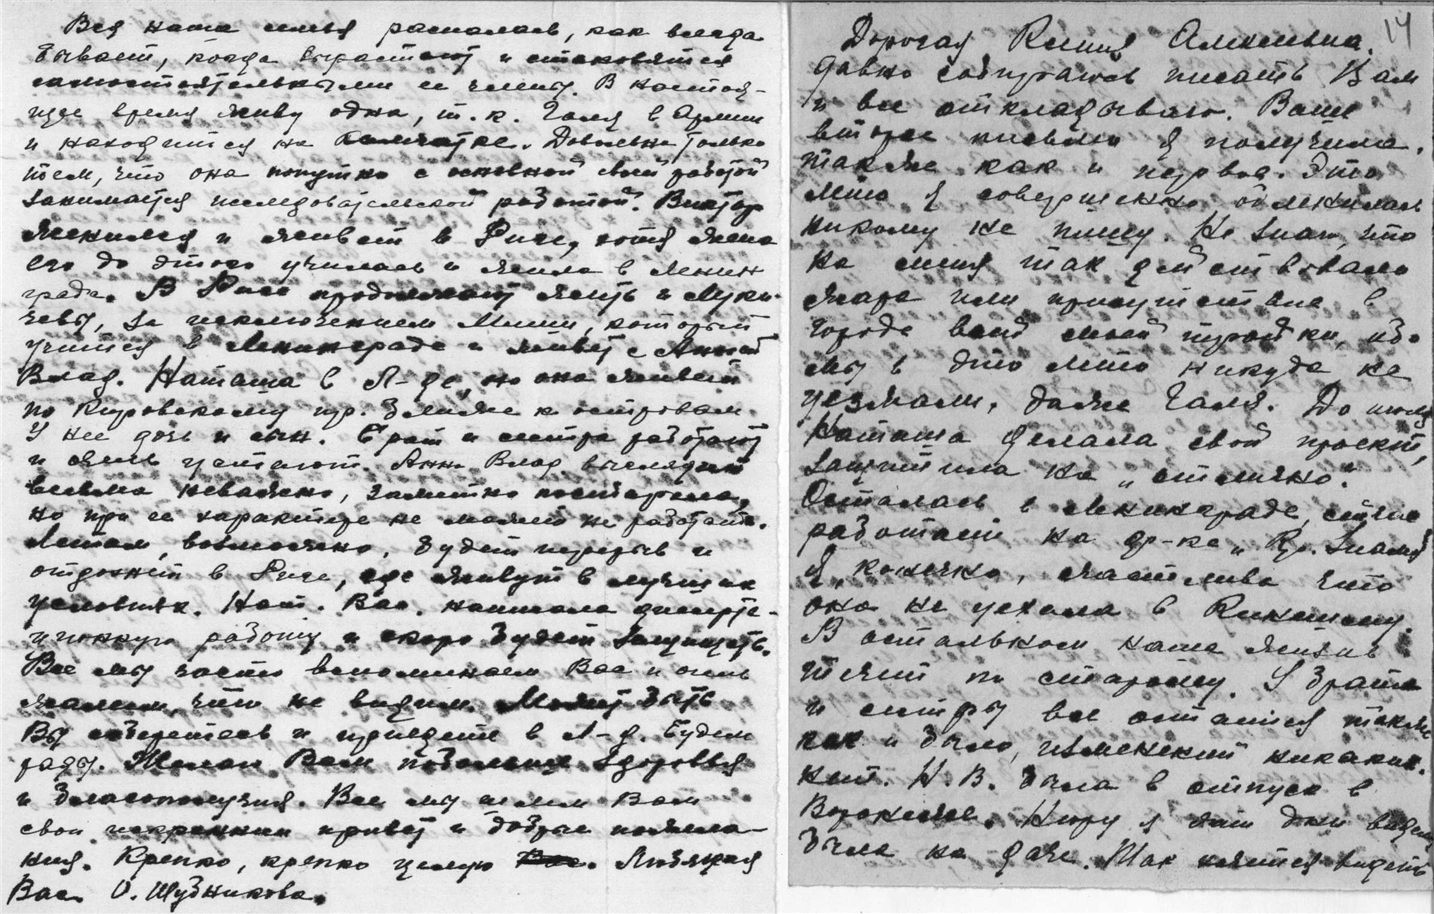 Вся наша семья распалась, как всегда
бывает, когда вырастают и становятся
самостоятельными ее члены. В настоя-
щее время живу одна, т.к. Галя в Армии
и находится на Камчатке. Довольна только
тем, что она попутно с основной своей работой
занимается исследовательской работой. Виктор
женился и живет в Риге, хотя жена
его до этого училась и жила в Ленин
граде. В Риге продолжают жить и
за исключением Миши, который
учится в Ленинграде и живет с Анной
Влад. Наташа в Л-де, но она живет
по Кировскому пр. ближе к островам.
У нее дочь и сын. Брат и сестра работают
и очень устают. Анна Влад. выглядит
весьма неважно, заметно постарела,
но при ее характере не может не работать.
Летом, возможно, будет перерыв и
отдохнет в Риге, где живут в лучших
условиях. Нат. Вас. написала диссерта-
ционную работу и скоро будет защищать.
Все мы часто вспоминаем Вас и очень
жалеем, что не видим. Может быть
Вы соберетесь и приедете в Л-д. Будем
рады. Желаю Вам побольше здоровья
и благополучия. Все мы шлем Вам
свой искренний привет и добрые пожела-
ния. Крепко, крепко целую. Любящая
Вас О. Шубникова.
14
Дорогая Ксения
давно собираюсь писать Вам
и все откладываю. Ваше
второе письмо я получила,
также как и первое. Это
лето я совершенно обленилась
никому не пишу. Не знаю, что
на меня так действовало
жара или присутствие в
городе всей моей
мы в это лето никуда не
уезжали, даже Галя. До июля
Наташа делала свой проект,
защитила на "отлично".
Осталась в Ленинграде, сейчас
работает на ф-ке "Кр. Знамя"
Я, конечно, счастлива что
она не уехала в Кинешму
В остальном наша жизнь
течет по старому. У брата
и сестры все остается также
как и было, изменений никаких.
нет. Н.В. была в отпуске в
Воронеже. Нюру я эти дни
была на даче. Так хочется видеть